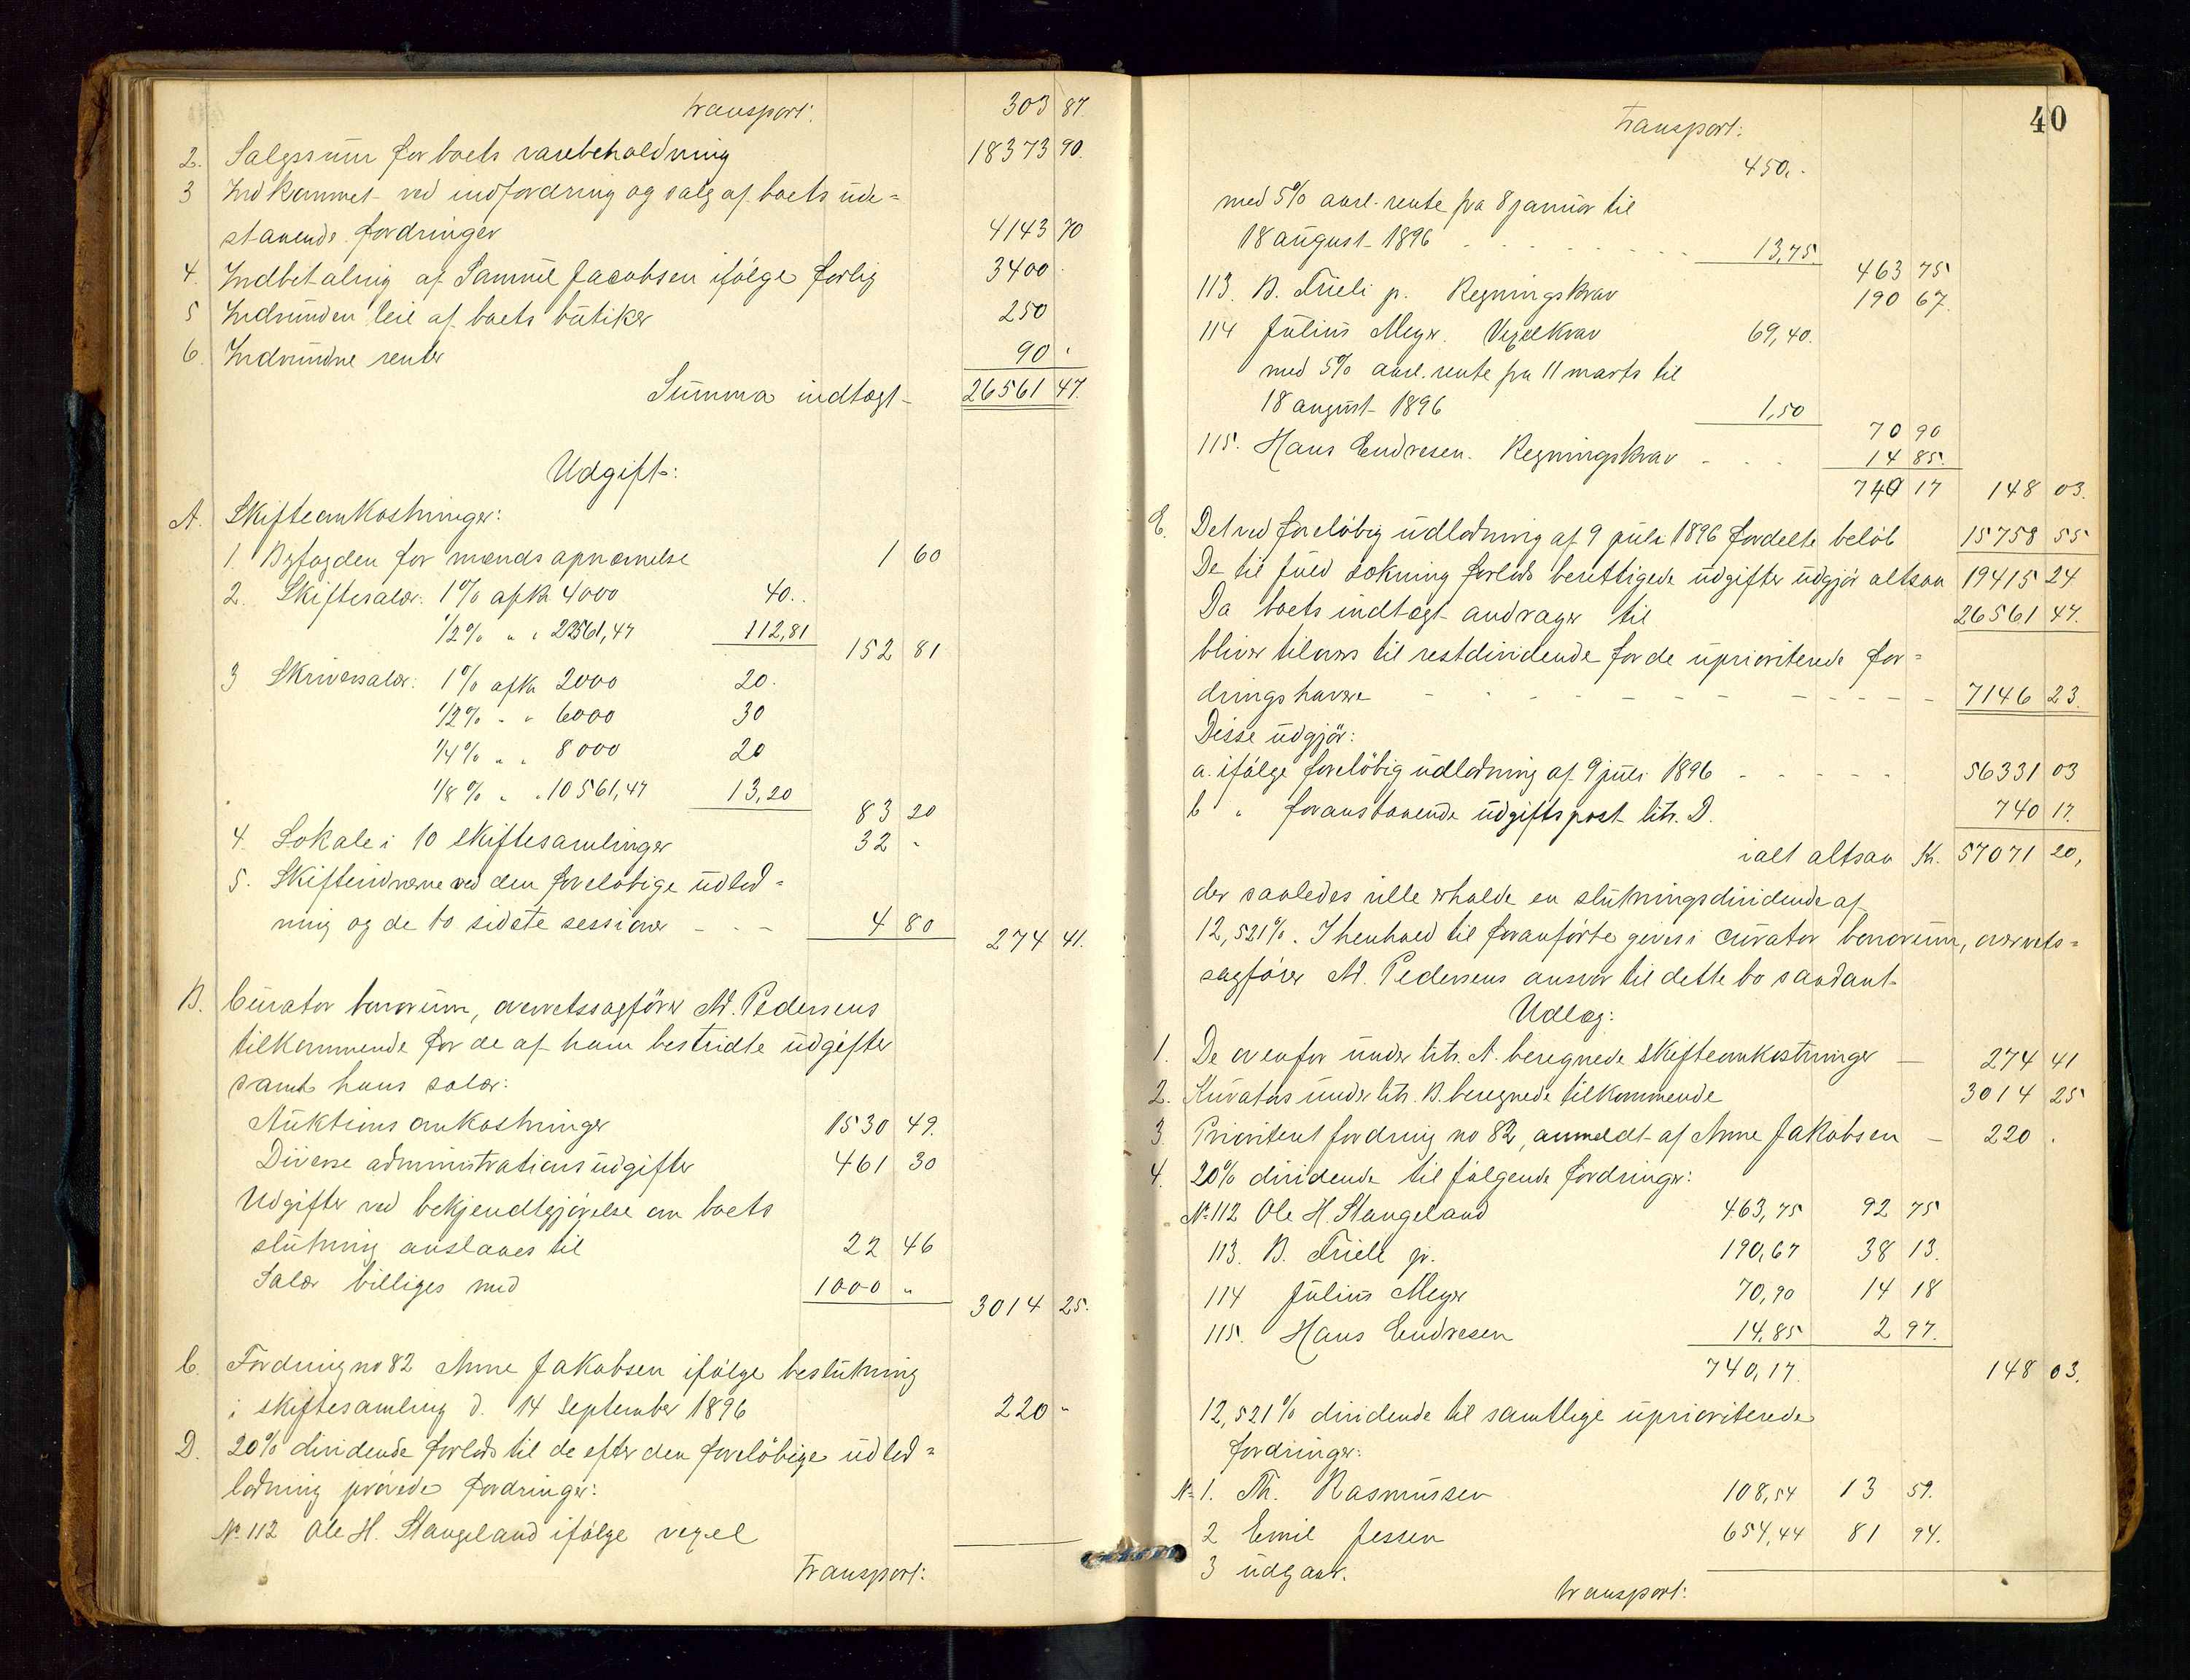 transport: 303 87.
2. Salgssum for boets varebeholdning 18373 90.
3 Indkommet ved indfordring og salg af boets ude=
staaende fordringer 4143 70
4. Indbetaling af Samuel Jacobsen ifølge forlig 3400 .
5 Indvunden leie af boets butiker 250
6. Indvundne renter 90 "
Summa indtægt 26561 47.
Udgift:
A. Skifteomkostninger:
1. Byfogden for mænds opnævnelse 1 60
2. Skiftesalær: 1% af Kr 4000 40..
1/2% " " 22561,47 112,81
152 81
3 Skriversalær: 1% af Kr 2000 20.
1/2% " " 6000 30
1/4% " " 8000 20
1/8% " " 10561,47 13,20
83 20
4. Lokale i 10 skiftesamlinger 32 "
5. Skiftevidnerne ved den foreløbige udlod=
ning og de to sidste sessioner - - - 4 80
274 41.
B. Curator bonorum, overretssagfører Ad. Pedersens
tilkommende for de af ham bestridte udgifter
samt hans salær:
Auktionsomkostninger 1530 49.
Diverse administrationsudgifter 461 30
Udgifter ved bekjendtgjørelse om boets
slutning anslaaes til 22 46
Salær billiges med 1000 "
3014 25.
C. Fordring no 82 Anne Jakobsen ifølge beslutning
i skiftesamling d. 14 September 1896 220 "
D. 20% dividende forlods til de efter den foreløbige udlod=
lodning prøvede fordringer:
No 112 Ole H. Stangeland ifølge vexel
Transport:
40
Transport:
450..
med 5% aarl. rente fra 8 januar til
18 august 1896 - - - - 13,75
463 75
113. B. Trieli jr. Regningskrav 190 67.
114 Julius Meyer. Vexelkrav 69,40.
med 5% aarl. rente fra 11 marts til
18 august 1896 1,50
70 90
115. Hans Endresen. Regningskrav - - - 14 85.
740 17 148 03.
E. Det ved foreløbig udlodning af 9 juli 1896 fordelte beløb 15758 55
De til fuld dækning forlods berettigede udgifter udgjør altsaa 19415 24
Da boets indtægt andrager til 26561 47.
bliver tilovers til restdividende for de uprioriterede for=
dringshavere - - - - - - 7146 23.
Disse udgjør:
a. ifølge foreløbig udlodning af 9 juli 1896 - - - - 56331 03
b " foranstaaende udgiftspost litr. D. 740 17.
ialt altsaa Kr. 57071 20,
der saaledes ville erholde en slutningsdividende af
12,521%. I henhold til foranførte gives i curator bonorum, overrets=
sagfører Ad. Pedersens ansvar til dette bo saadant
Udlæg:
1. De ovenfor under litr. A. beregnede skifteomkostninger — 274 41
2. Kurators under litr. B. beregnede tilkommende 3014 25
3. Prioriteret fordring no 82, anmeldt af Anne Jakobsen — 220 .
4. 20% dividende til følgende fordringer:
No 112 Ole H. Stangeland 463,75 92 75
113. B. Trieli jr. 190,67 38 13.
114 Julius Meyer 70,90 14 18
115. Hans Endresen 14,85 2 97.
740,17. 148 03.
12,521% dividende til samtlige uprioriterede
fordringer:
No 1. Th. Rasmussen 108,54 13 59.
2 Emil Jessen 654,44 81 94.
3 udgaar.
transport: